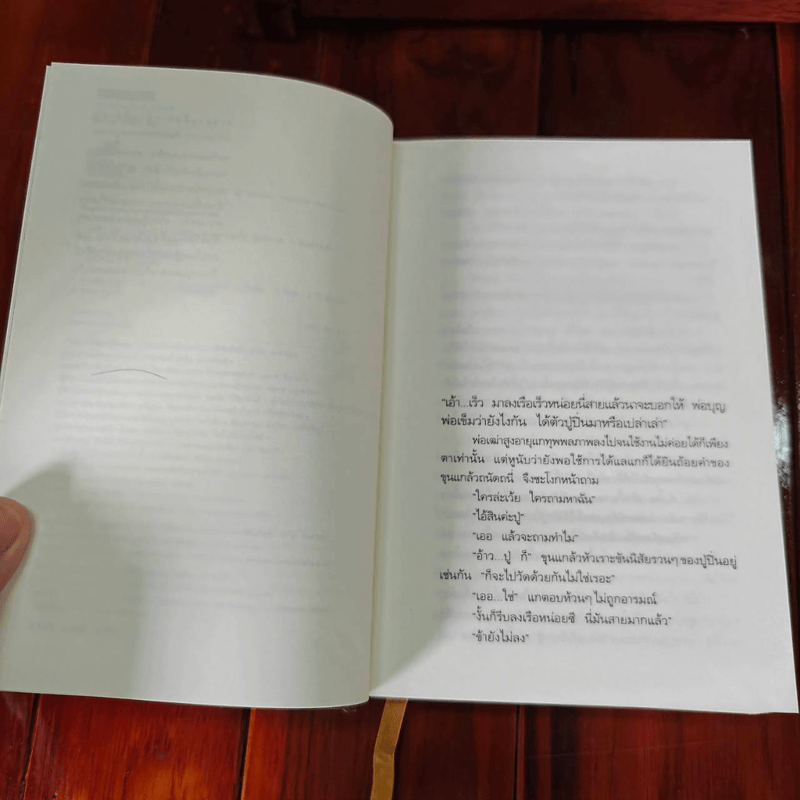 "เอ้า...เร็ว มาลงเรือเร็วหน่อยนี่สายแล้วนาจะบอกให้ พ่อบุญ
พ่อเข็มว่ายังไงกัน ได้ตัวปู่ปิ่นมาหรือเปล่าเล่า"
พ่อเฒ่าสูงอายุแกทุพพลภาพลงไปจนใช้งานไม่ค่อยได้ก็เพียง
ตาเท่านั้น แต่หูนับว่ายังพอใช้การได้แลแกก็ได้ยินถ้อยคำของ
ขุนแกล้วถนัดถนี่ จึงชะโงกหน้าถาม
"ใครล่ะเว้ย ใครถามหาฉัน"
"ไอ้สินค่ะปู่"
"เออ แล้วจะถามทำไม"
"อ้าว...ปู่ ก็" ขุนแกล้วหัวเราะขันนิสัยรวนๆ ของปู่ปิ่นอยู่
เช่นกัน "ก็จะไปวัดด้วยกันไม่ใช่เรอะ"
"เออ...ใช่" แกตอบห้วนๆ ไม่ถูกอารมณ์
"งั้นก็รีบลงเรือหน่อยซี นี่มันสายมากแล้ว"
"ข้ายังไม่ลง"